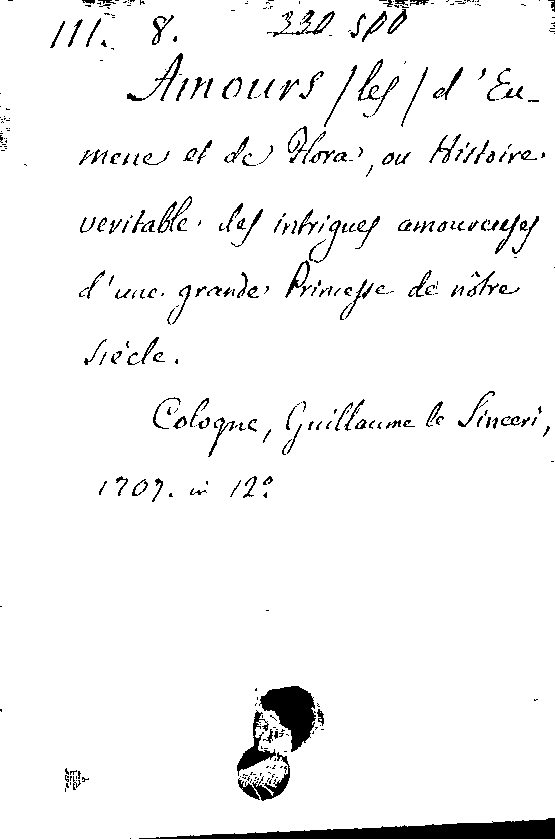 III. 8. 330 500
Amours /les/ d'Eu-
mene et de Flora, ou Histoire
veritable des intrigues amoureuses
d'une grande Princesse de nôtre
siècle.
Cologne, Guillaume le Sinceri,
1707. in 12º